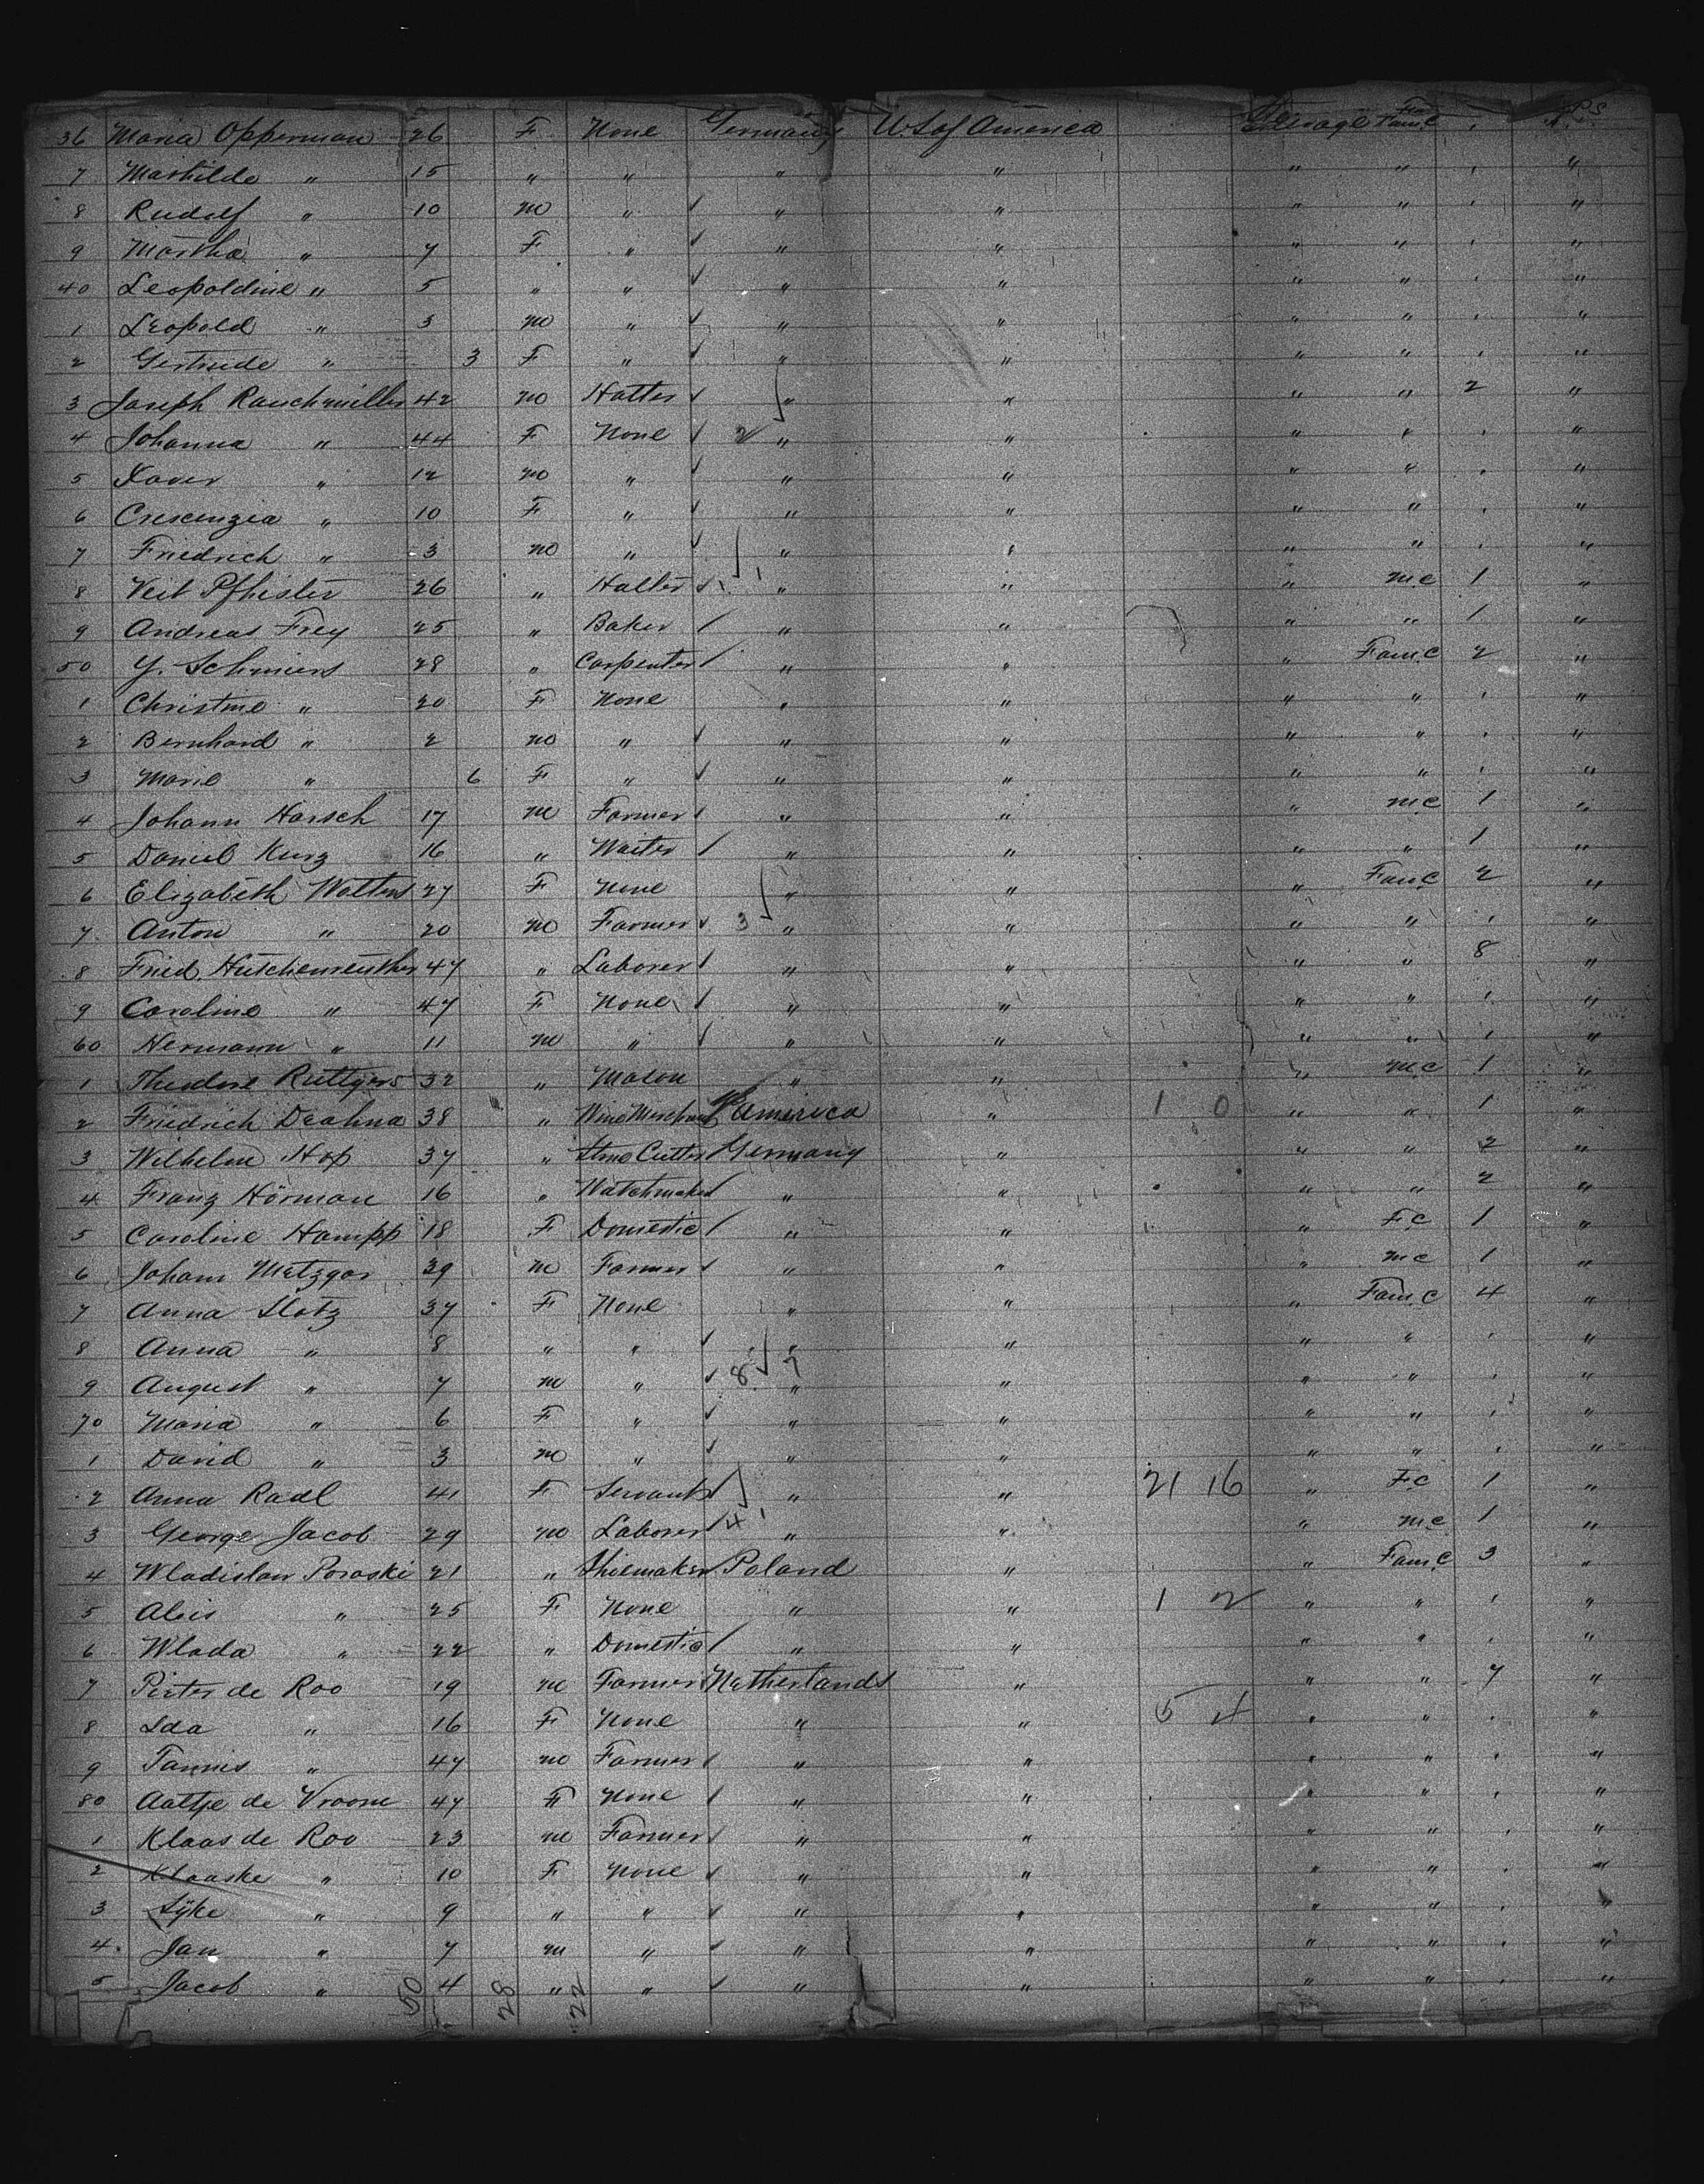 36 Maria Opperman 26 F None Germany U.S of America Steerage Fam.C
7 Mathilde " 15 " " " " " " "
8 Rudolf " 10 m " " " " " "
9 Martha " 7 F " " " " " "
40 Leopoldine " 5 " " " " " " "
1 Leopold " 3 m " " " " " "
2 Gertrude " 3 F " " " " " "
3 Joseph Rauchmiller 42 m Hatter " " " " 2 "
4 Johanna " 44 F None 2 " " " " "
5 Xaver " 12 m " " " " " "
6 Crescenzia " 10 F " " " " " "
7 Friedrich " 3 m " " " " " "
8 Veit Pfhister 26 " Hatter " " " m.c 1 "
9 Andreas Frey 25 " Baker " " " " 1 "
50 J. Schmiers 28 " Carpenter " " " Fam.C 2 "
1 Christine " 20 F None " " " " "
2 Bernhard " 2 m " " " " " "
3 Marie " 6 F " " " " " "
4 Johann Harsch 17 m Farmer " " " m.c 1 "
5 Daniel Kurz 16 " Waiter " " " " 1 "
6 Elizabeth Walters 27 F None " " " Fam.C 2 "
7 Anton " 20 m Farmer 3 " " " " "
8 Fried. Hutschenreuther 47 " Laborer " " " " 8 "
9 Caroline " 47 F None " " " " "
60 Hermann " 11 m " " " " " "
1 Theodore Ruttgers 32 " Mason " " " m.c 1 "
2 Friedrich Deahna 38 " Wine Merchant America " 1 0 " " 1 "
3 Wilhelm Hop 37 " Stone Cutter Germany " " " 2 "
4 Franz Hörman 16 " Watchmaker " " " " 2 "
5 Caroline Hampp 18 F Domestic " " " F.c 1 "
6 Johann Metzgar 39 m Farmer " " " m.c 1 "
7 Anna Slotz 37 F None " " " Fam.C 4 "
8 Anna " 8 " " " " " " "
9 August " 7 m " 8 7 " " " " "
70 Maria " 6 F " " " " " "
1 David " 3 m " " " " " "
2 Anna Radl 41 F Servant " " 21 16 " F.c 1 "
3 George Jacob 29 m Laborer 4 " " " m.c 1 "
4 Wladislaw Poraski 21 " Shoemaker Poland " " Fam.C 3 "
5 " 25 F None " " 1 2 " " "
6 Wlada " 22 " Domestic " " " " "
7 Pieter de Roo 19 m Farmer Netherlands " " " 7 "
8 Ida " 16 F None " " 5 4 " " "
9 Tannis " 47 m Farmer " " " " "
80 Aaltje de Vroom 47 F None " " " " "
1 Klaas de Roo 23 m Farmer " " " " "
2 Klaaske " 10 F None " " " " "
3 Sijke " 9 " " " " " " "
4 Jan " 7 m " " " " " "
5 Jacob " 4 " " " " " " "
50 28 22